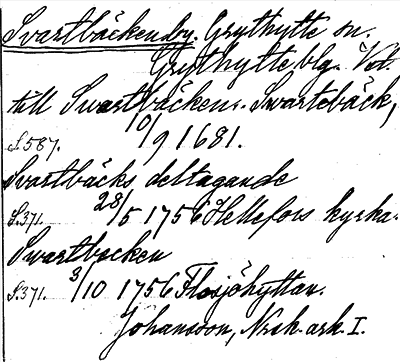 Svartbäcken by. Grythytte sn.
Grythytte blg. Vol.
till Swartbäcken. Swartebäck,
S. 587. 10/9 1681.
Svartbäcks deltagande
S. 371. 28/5 1756 Hellefors kyrka.
Swartbocken
S. 371. 3/10 1756 Flosjöhyttan.
Johansson, Nrsk. ark. I.